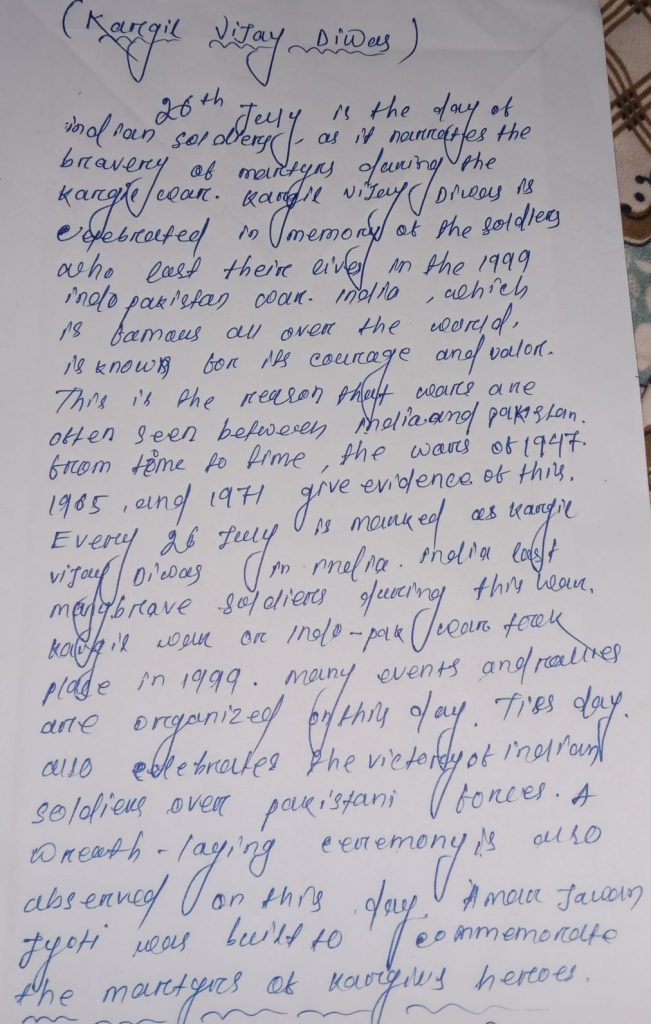 (Kargil Vijay Diwas)
26th July is the day of
indian soldiers, as it narrates the
bravery of martyrs during the
kargil war. kargil vijay Diwas is
celebrated in memory of the soldiers
who last their lives in the 1999
indo pakistan war. india, which
is famous all over the world,
is known for its courage and valor.
This is the reason that wars are
often seen between india and pakistan.
from time to time, the wars of 1947.
1965, and 1971 give evidence of this.
Every 26 July is marked as kargil
vijay Diwas in india. india last
many brave soldiers during this war.
kargil war or Indo-pak war took
place in 1999. many events and rallies
are organized on this day. Tiss day.
also celebrates the victory of indian
soldiers over pakistani forces. A
wreath-laying ceremony is also
absenved on this day. Amar Jawan
Jyoti was built to commemorate
the martyrs of kargius heroes.